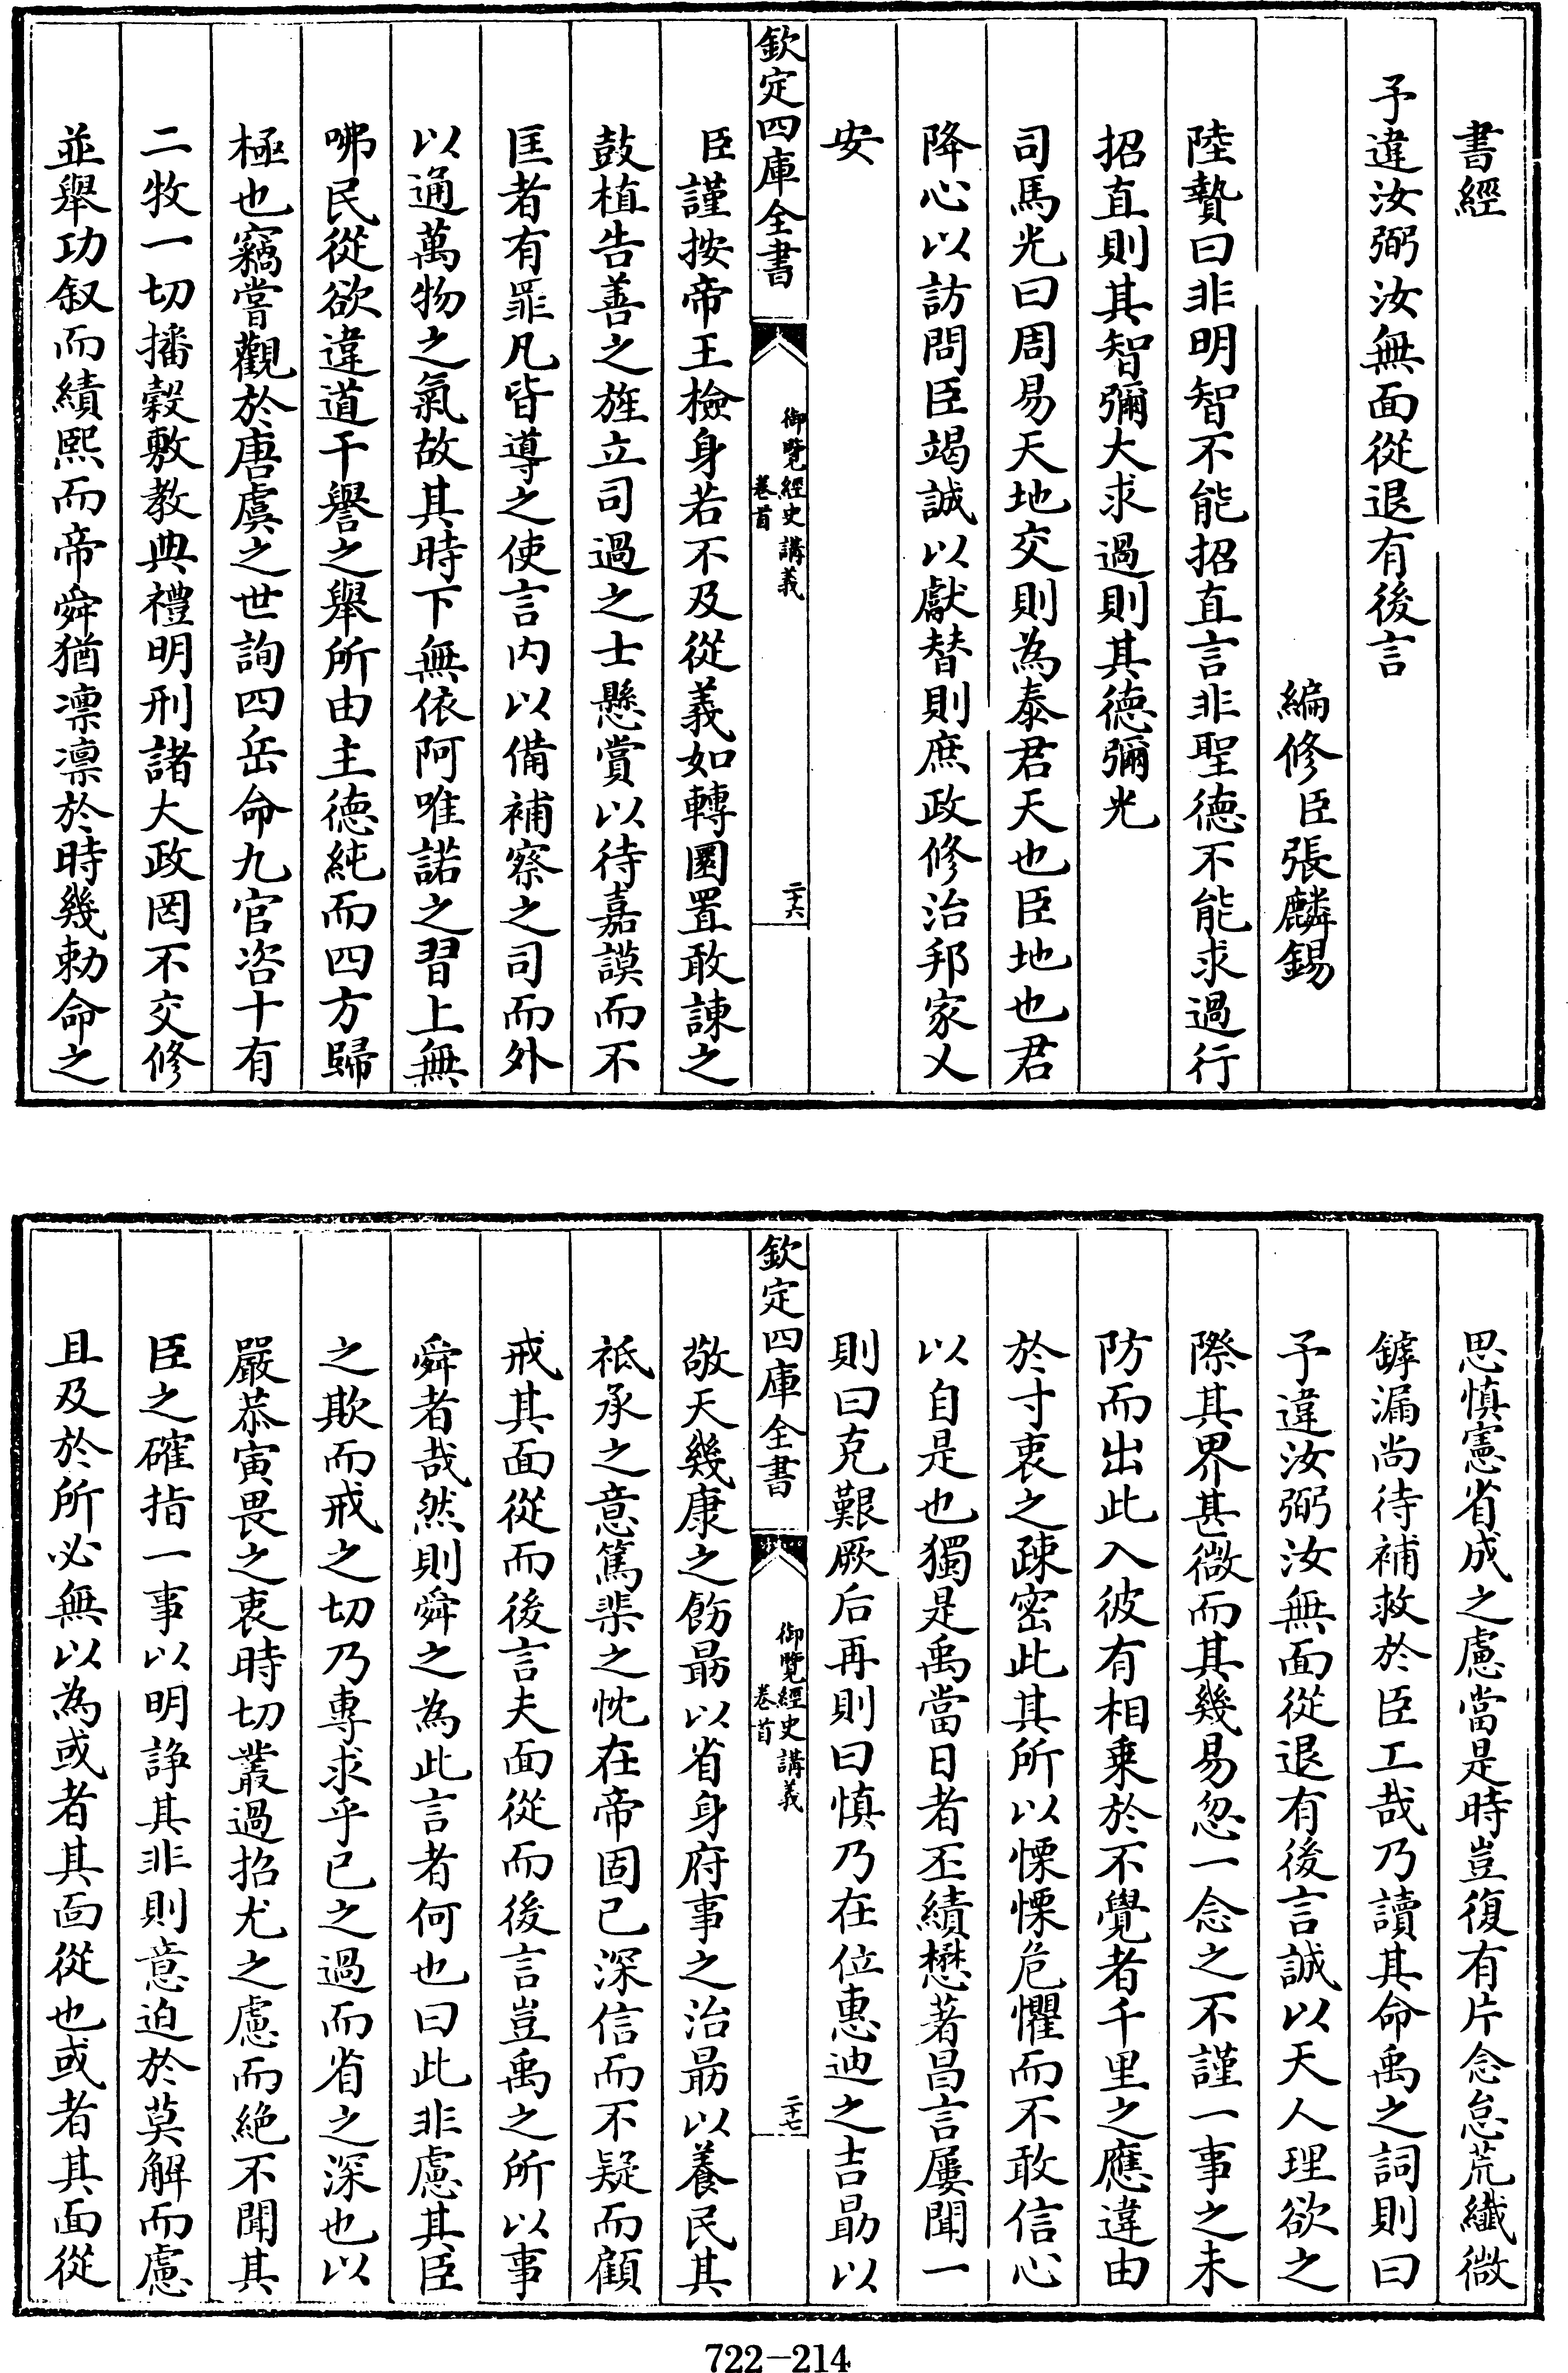 書經
予違汝弼汝無面從退有後言
編修臣張麟錫
陸贄曰非明智不能招直言非聖德不能求過行
招直則其智彌大求過則其德彌光
司馬光曰周易天地交則為泰君天也臣地也君
降心以訪問臣竭誠以獻替則庶政修治邦家乂
安
欽定四庫全書
御覽經史講義
卷首
二十六
臣謹按帝王檢身若不及從義如轉圜置敢諫之
鼓植告善之旌立司過之士懸賞以待嘉謨而不
匡者有罪凡皆導之使言内以備補察之司而外
以通萬物之氣故其時下無依阿唯諾之習上無
咈民從欲違道干譽之舉所由主德純而四方歸
極也竊嘗觀於唐虞之世詢四岳命九官咨十有
二牧一切播穀敷教典禮明刑諸大政罔不交修
並舉功叙而績熙而帝舜猶凛凛於時幾勅命之
思慎憲省成之慮當是時豈復有片念怠荒纖微
罅漏尚待補救於臣工哉乃讀其命禹之詞則曰
予違汝弼汝無面從退有後言誠以天人理欲之
際其界甚微而其幾易忽一念之不謹一事之未
防而出此入彼有相乗於不覺者千里之應違由
於寸衷之疎密此其所以慄慄危懼而不敢信心
以自是也獨是禹當日者丕績懋著昌言屢聞一
則曰克艱厥后再則曰慎乃在位惠迪之吉勗以
欽定四庫全書
御覽經史講義
卷首
二十七
敬天幾康之飭勗以省身府事之治勗以養民其
祇承之意篤棐之忱在帝固已深信而不疑而顧
戒其面從而後言夫面從而後言豈禹之所以事
舜者哉然則舜之為此言者何也曰此非慮其臣
之欺而戒之切乃專求乎已之過而省之深也以
嚴恭寅畏之衷時切叢過招尤之慮而絶不聞其
臣之確指一事以明諍其非則意迫於莫解而慮
且及於所必無以為或者其面從也或者其面從
722-214